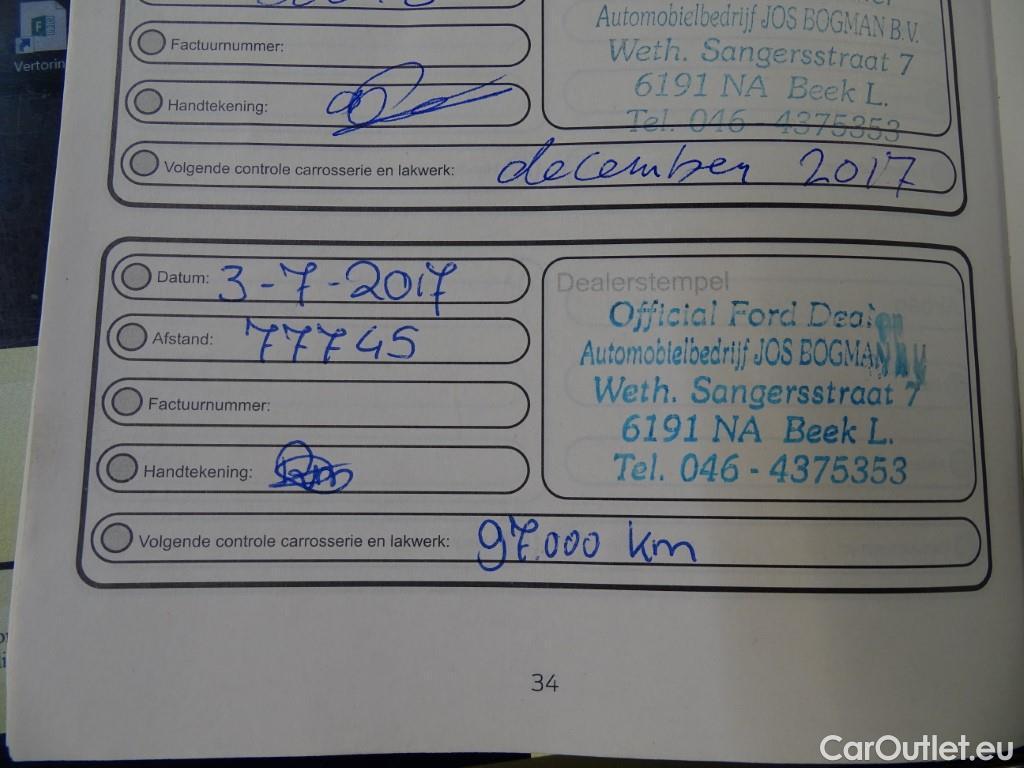 Vertorin
Automobielbedrijf JOS BOGMAN B.V.
Factuurnummer:
Weth. Sangersstraat 7
6191 NA Beek L.
Handtekening:
Tel. 046 - 4375353
Volgende controle carrosserie en lakwerk: december 2017
Datum: 3-7-2017
Dealerstempel
Official Ford Dealer
Afstand: 77745
Automobielbedrijf JOS BOGMAN
Weth. Sangersstraat 7
Factuurnummer:
6191 NA Beek L.
Handtekening:
Tel. 046 - 4375353
Volgende controle carrosserie en lakwerk: 97.000 km
34
CarOutlet.eu